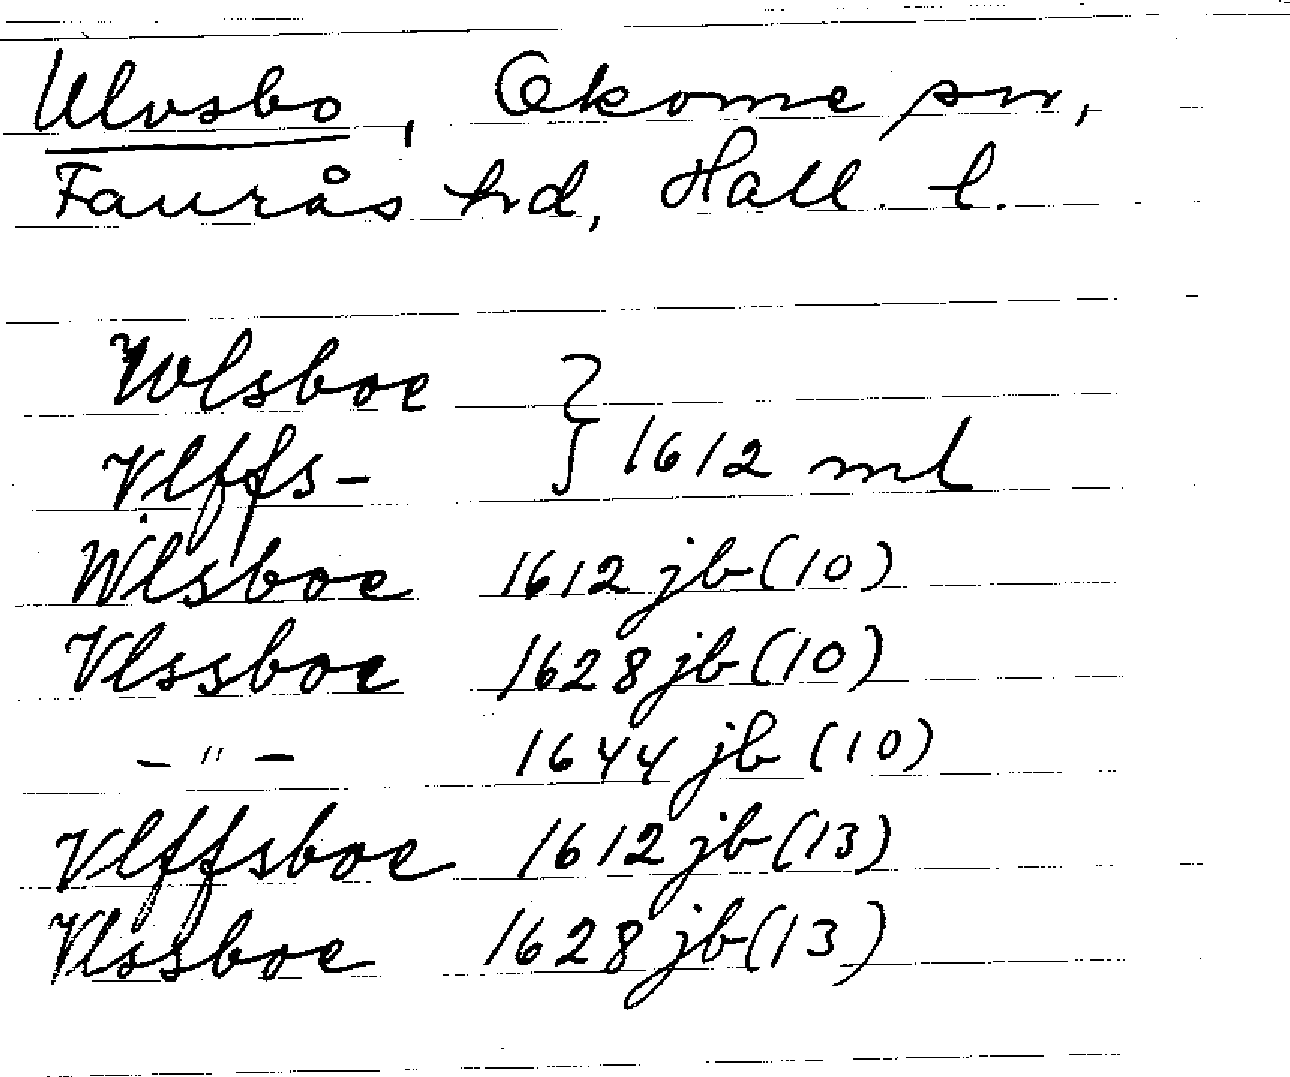 Ulvsbo, Okome sn,
Faurås hd, Hall. l.
Wlsboe
Vlffs- } 1612 ml
Wlsboe 1612 jb (10)
Vlssboe 1628 jb (10)
- " - 1644 jb (10)
Vlffsboe 1612 jb (13)
Vlssboe 1628 jb (13)